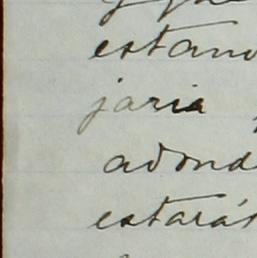 estand
jaria
adond
estarás